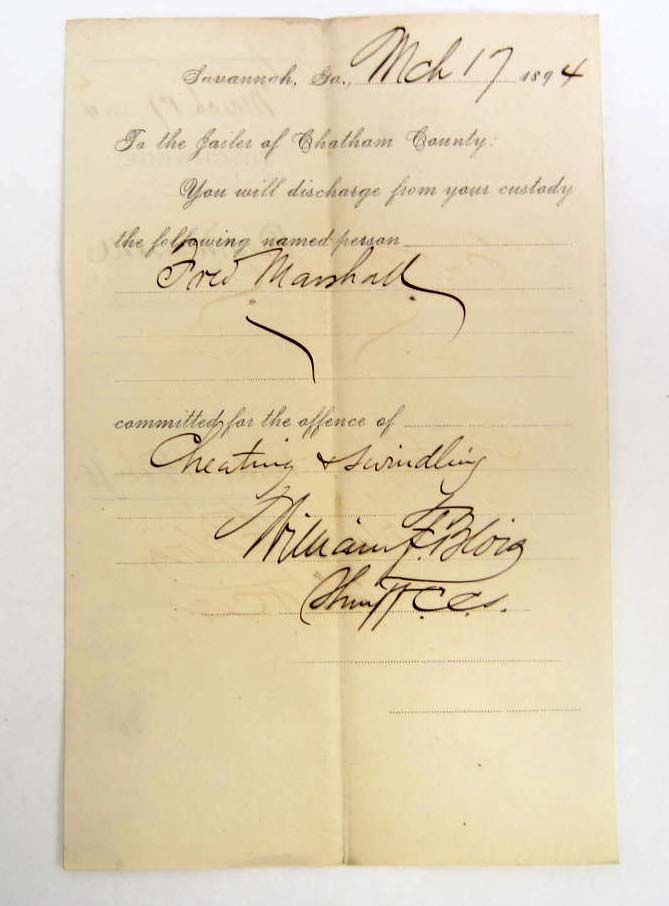 Savannah, Ga., Mch 17 1894
To the Jailer of Chatham County:
You will discharge from your custody
the following named person
Fred Marshall
committed for the offence of
Cheating & Swindling
William F.
Sheriff C.C.